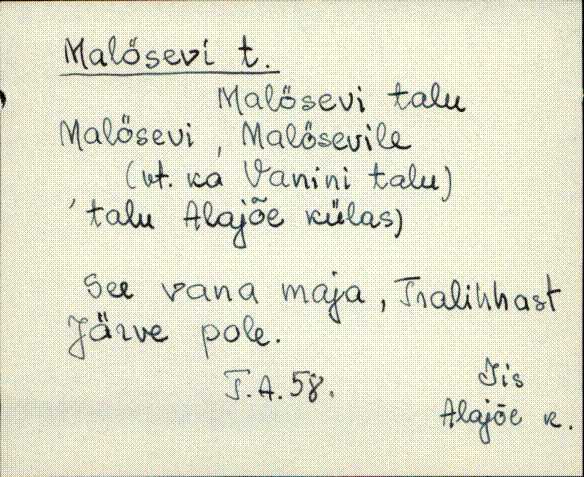 Malõsevi t.
Malõsevi talu
Malõsevi, Malõsevile
(vt. ka Vanini talu)
'talu Alajõe külas)
See vana maja, Tralihhast
Järve pole.
T.A. 58.
Iis
Alajõe k.